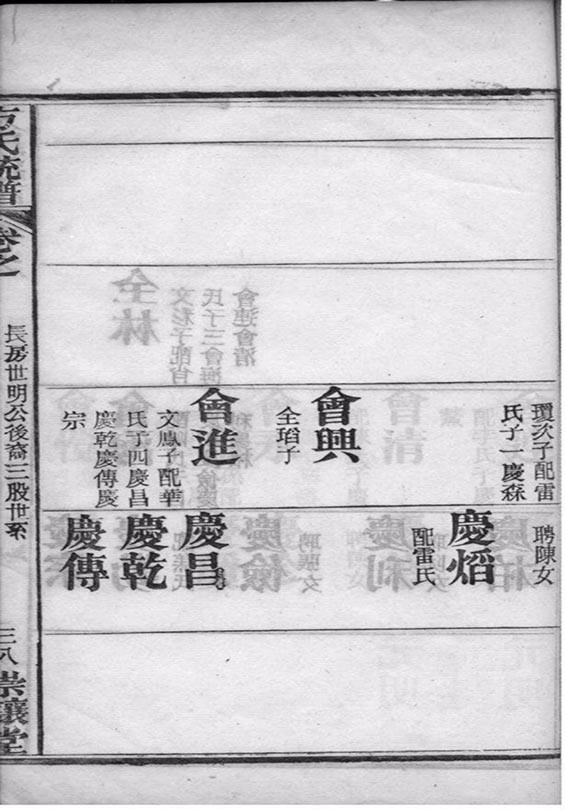 瓊次子配雷
氏子一慶森
會興
全瑫子
會進
文鳳子配華
氏子四慶昌
慶乾慶傳慶
宗
聘陳女
慶熖
配雷氏
慶昌
慶乾
慶傳
方氏統譜
卷之
長房世明公後裔三股世系
三八
崇讓堂